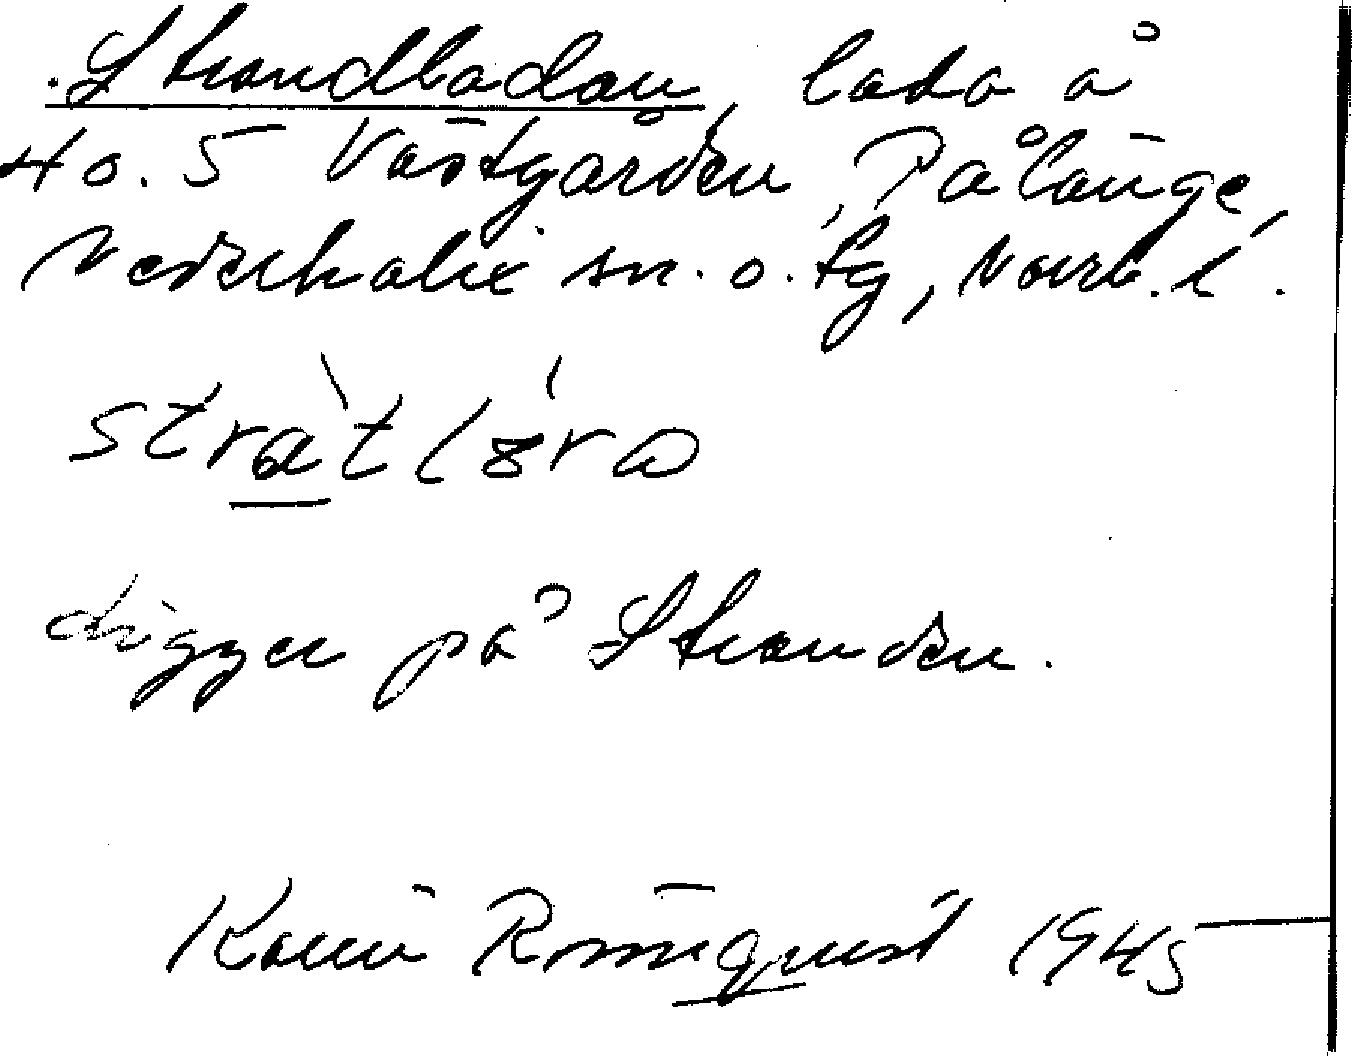 Strandladan, lada å
Ho. 5 Västgården, Pålänge,
Nederkalix sn. o. tg, Norrb. l.
ligger på Stranden.
Rönnqvist 1945